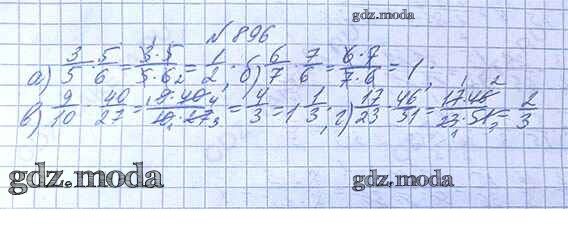 gdz.moda
N 896
а) 3/5 · 5/6 = 3·5/5·6 = 1/2; б) 6/7 · 7/6 = 6·7/7·6 = 1;
в) 9/10 · 40/27 = 9·40/10·27 = 4/3 = 1 1/3; г) 17/23 · 46/51 = 17·46/23·51 = 2/3
gdz.moda gdz.moda
gdz.moda